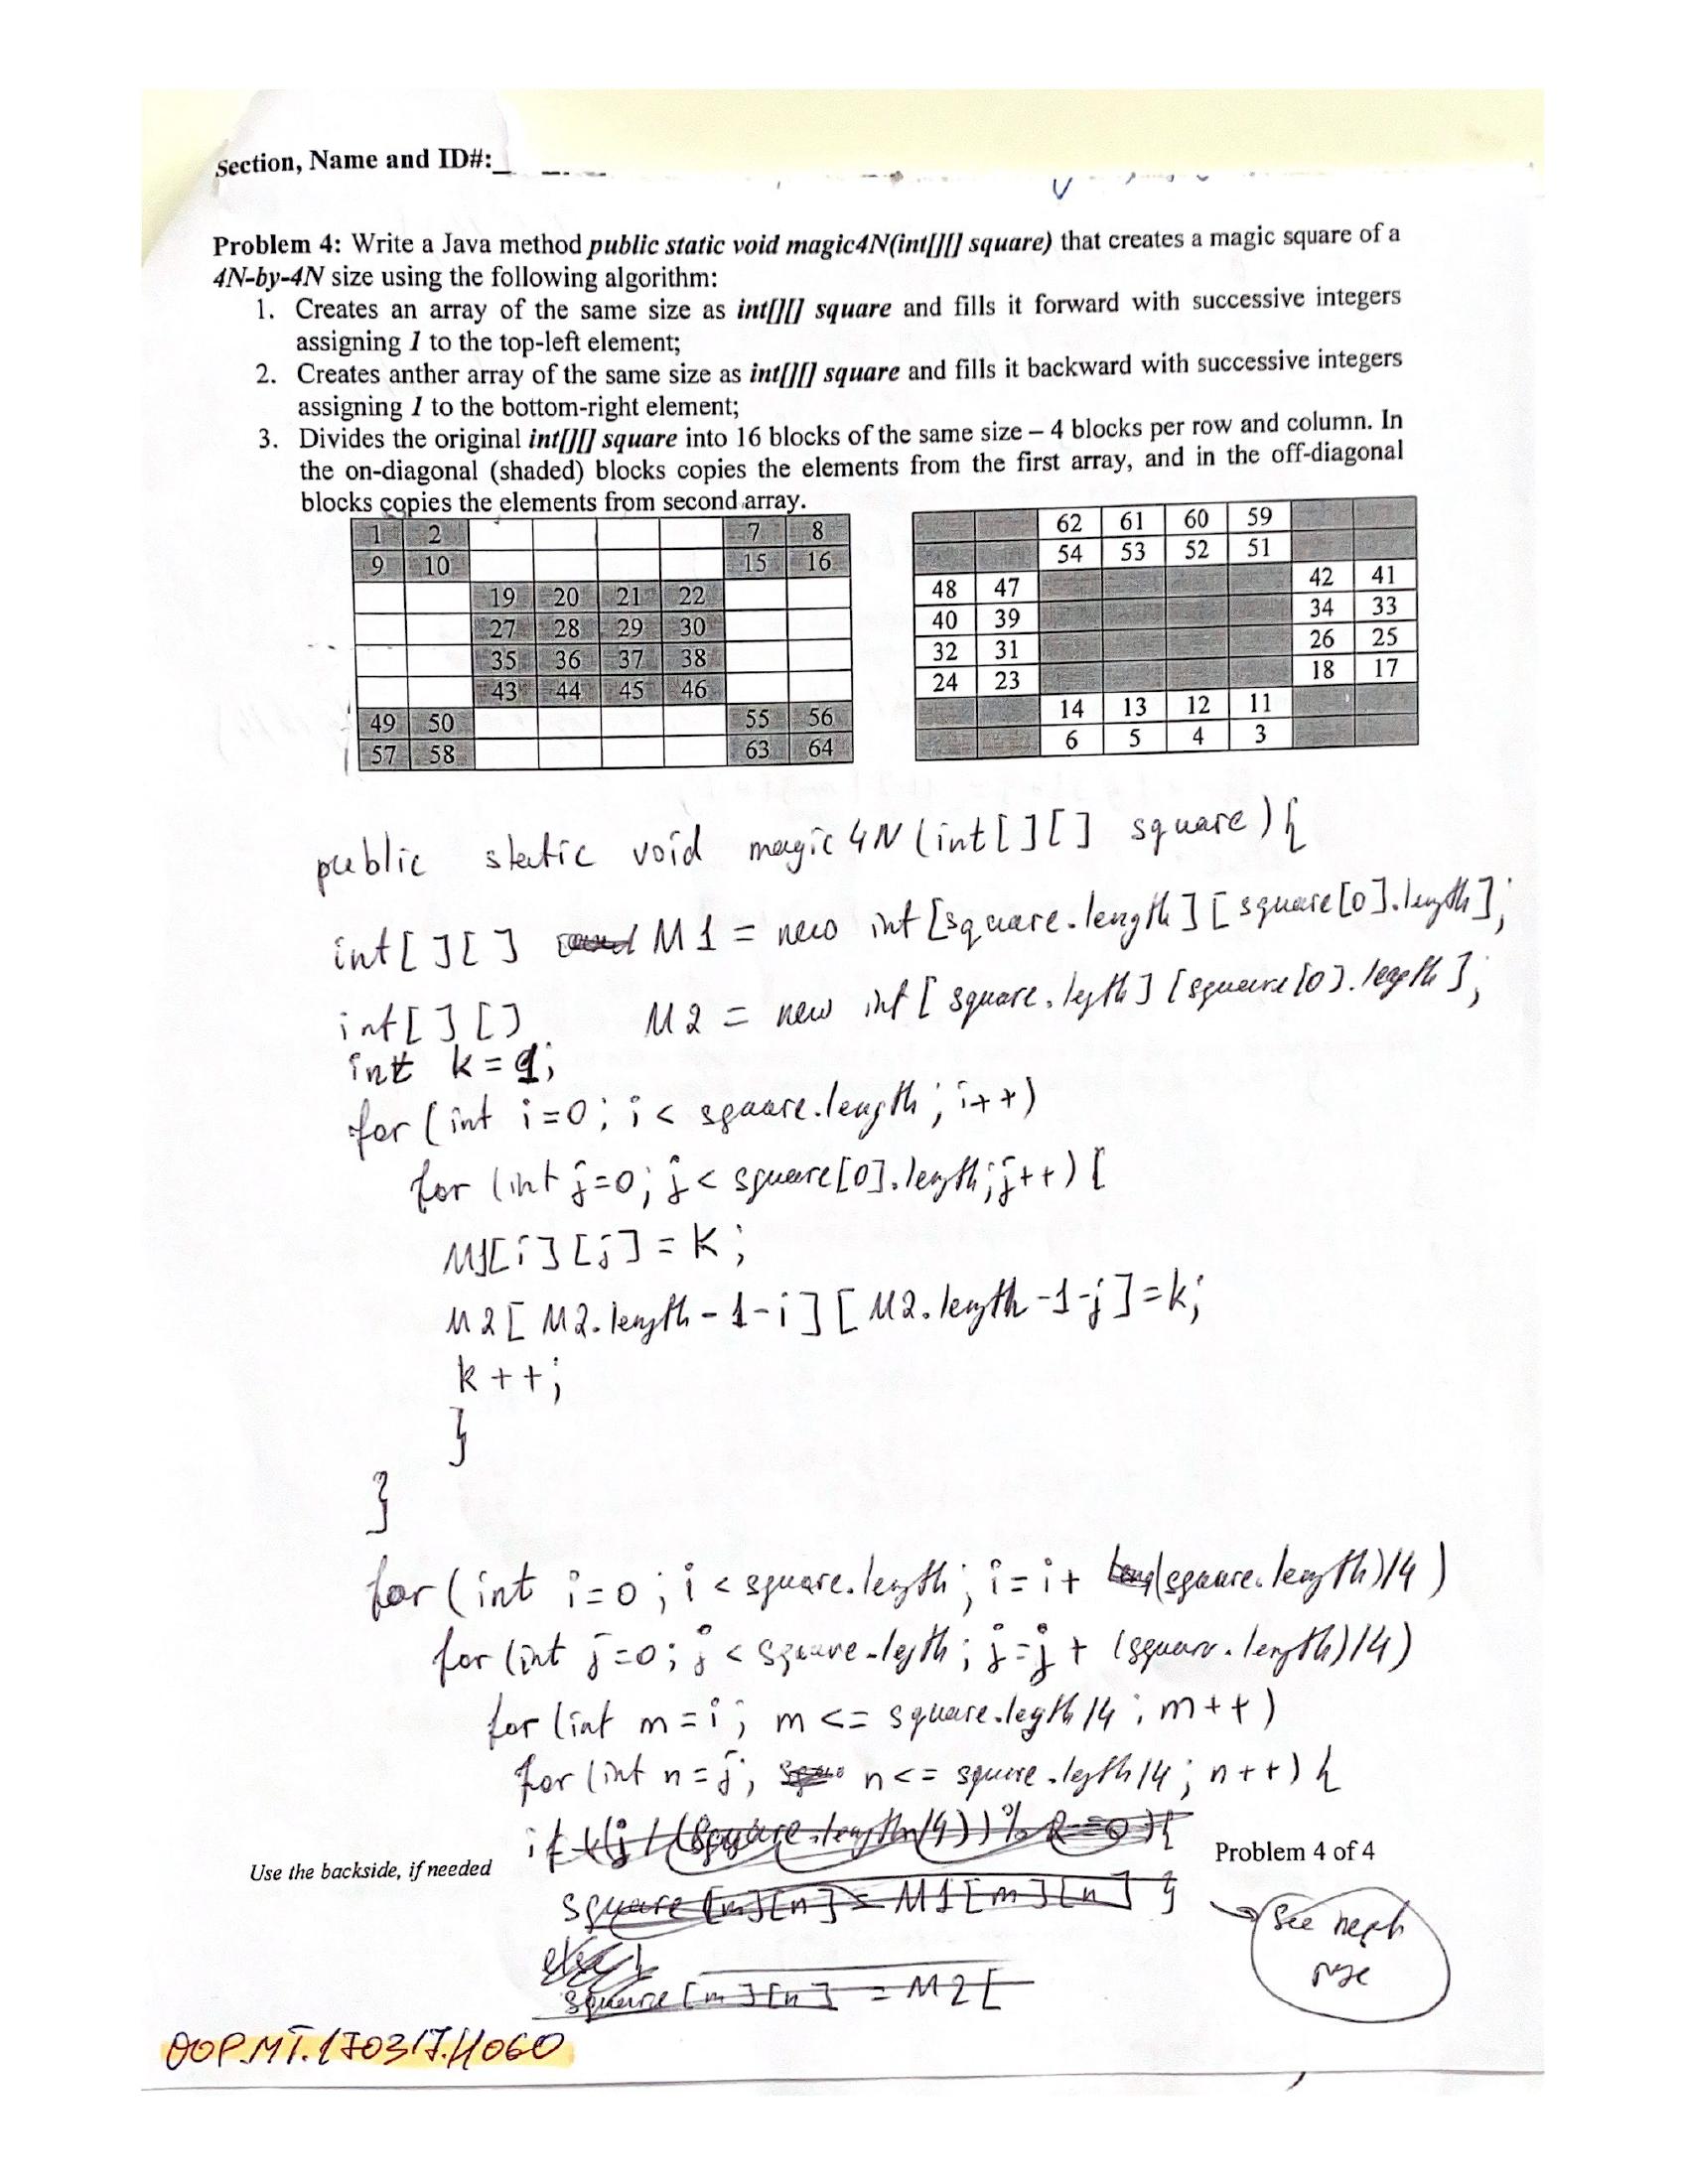 Section, Name and ID#:
Problem 4: Write a Java method public static void magic4N(int[][] square) that creates a magic square of a
4N-by-4N size using the following algorithm:
1. Creates an array of the same size as int[][] square and fills it forward with successive integers
assigning 1 to the top-left element;
2. Creates anther array of the same size as int[][] square and fills it backward with successive integers
assigning 1 to the bottom-right element;
3. Divides the original int[][] square into 16 blocks of the same size – 4 blocks per row and column. In
the on-diagonal (shaded) blocks copies the elements from the first array, and in the off-diagonal
blocks copies the elements from second array.
1 2 7 8
9 10 15 16
19 20 21 22
27 28 29 30
35 36 37 38
43 44 45 46
49 50 55 56
57 58 63 64
62 61 60 59
54 53 52 51
48 47 42 41
40 39 34 33
32 31 26 25
24 23 18 17
14 13 12 11
6 5 4 3
public static void magic4N(int[][] square){
int[][] M1 = new int[square.length][square[0].length];
int[][] M2 = new int[square.legth][square[0].length];
int k=1;
for(int i=0; i< square.length; i++)
for(int j=0; j< square[0].length; j++){
M1[i][j]=k;
M2[M2.length-1-i][M2.length-1-j]=k;
k++;
}
}
for(int i=0; i<square.length; i=i+(square.length)/4)
for(int j=0; j<square.legth; j=j+(square.length)/4)
for(int m=i; m<=square.legth/4; m++)
for(int n=j; n<=square.legth/4; n++){
if ((j/(square.length/4))%2==0){
square[m][n]=M1[m][n]}
else{
square[m][n]=M2[
Use the backside, if needed
Problem 4 of 4
See next
page
OOP.MT.170317.H060